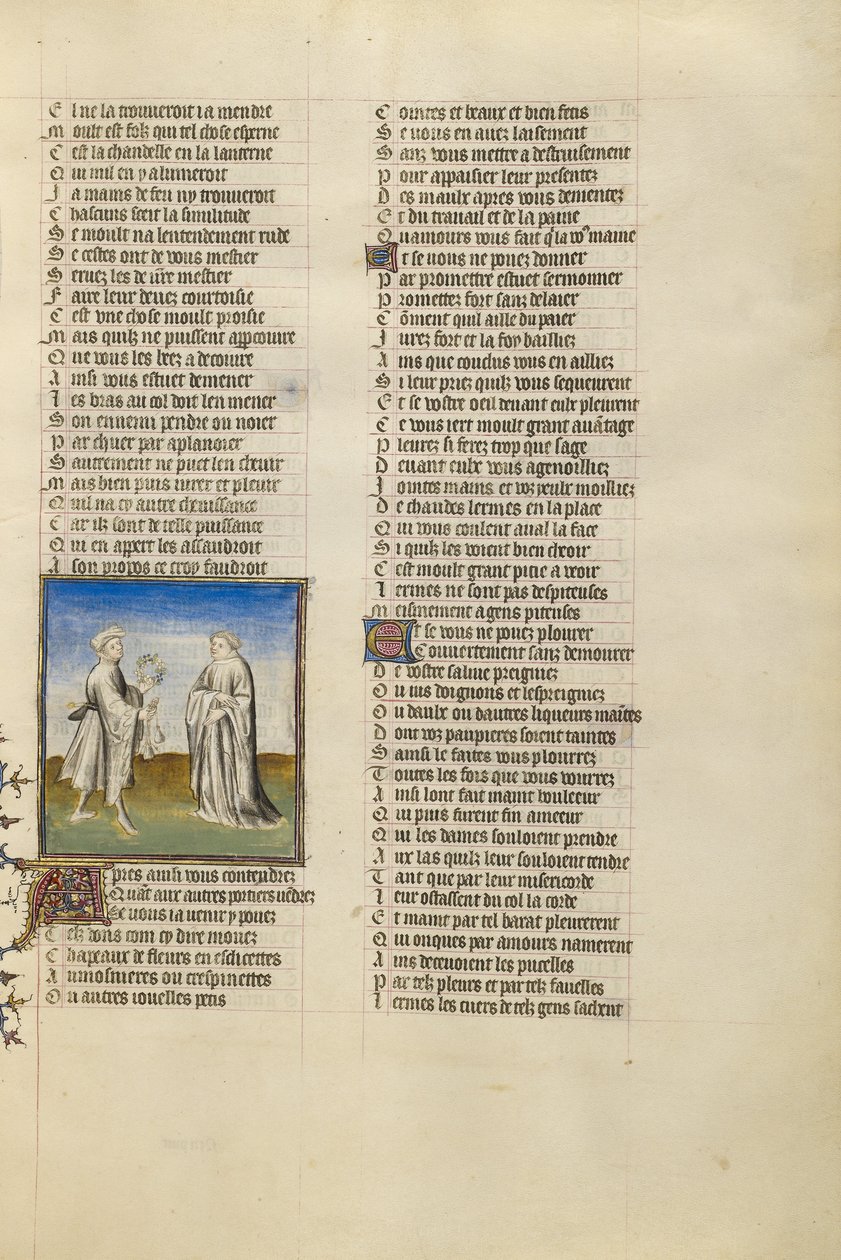 El ne la trouueroit ia mendre
Moult est folz qui tel chose esperne
Cest la chandelle en la lanterne
Qui mil en y alumeroit
Ja mains de feu ny trouueroit
Chascuns scet la similitude
Se moult na lentendement rude
Se cestes ont de vous mestier
Seruez les de vr̃e mestier
Faire leur deuez courtoisie
Cest vne chose moult proisie
Mais quilz ne puissent apparceuoire
Que vous les beez a deceuoire
Ainsi vous estuet demener
Les bras au col doit len mener
Son ennemi pendre ou noier
Par chuer par aplanoier
Sautrement ne puet len cheuir
Mais bien puis iurer et pleuir
Quil na cy autre cheuissance
Car ilz sont de telle puissance
Qui en appert les assaudroit
A son propos ce croy faudroit
Apres ainsi vous contendrez
Quãt aux autres portiers uẽdrez
Se vous ia uenir y pouez
Telz dons com cy dire mouez
Chapeaux de fleurs en esclicettes
Aumosnieres ou crespinettes
Ou autres iouelles petis
Cointes et beaux et bien fetis
Se uous en auez laisement
Sanz vous mettre a destruisement
Pour appaisier leur presentez
Des maulx apres vous dementez
Et du trauail et de la paine
Quamours vous fait q̃ la vo9 maine
Et se uous ne pouez donner
Par promettre estuet sermonner
Promettez fort sanz delaier
Cõment quil aille du paier
Jurez fort et la foy bailliez
Ains que conclus vous en ailliez
Si leur priez quilz vous sequeurent
Et se vostre oeil deuant eulx pleurent
Ce vous iert moult grant auãtage
Pleurez si ferez trop que sage
Deuant eulx vous agenoilliez
Jointes mains et voz yeulx moilliez
De chaudes lermes en la place
Qui vous coulent aual la face
Si quilz les voient bien cheoir
Cest moult grant pitie a veoir
Lermes ne sont pas despiteuses
Meismement a gens piteuses
Et se vous ne pouez plourer
Couuertement sanz demourer
De vostre saliue preigniez
Ou ius doignons et lespreigniez
Ou daulx ou dautres liqueurs maĩtes
Dont voz paupieres soient taintes
Sainsi le faites vous plourrez
Toutes les fois que vous vourrez
Ainsi lont fait maint bouleeur
Qui puis furent fin ameeur
Qui les dames souloient prendre
Aux las quilz leur souloient tendre
Tant que par leur misericorde
Leur ostassent du col la corde
Et maint par tel barat pleurerent
Qui onques par amours namerent
Ains deceuoient les pucelles
Par telz pleurs et par telz fauelles
Lermes les cuers de telz gens sachent